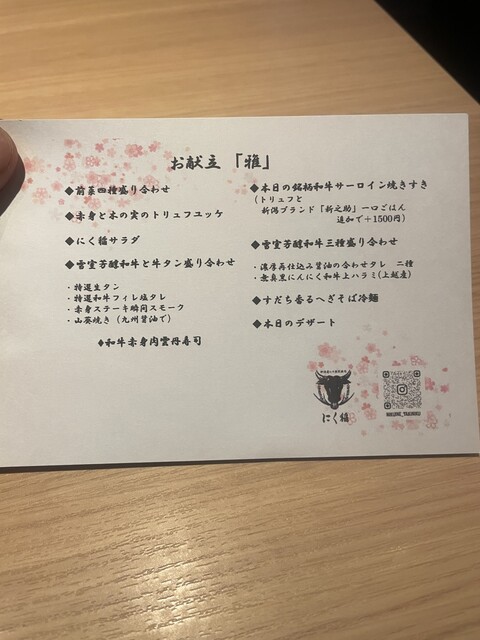 お献立「雅」
◆前菜四種盛り合わせ
◆赤身と木の実のトリュフユッケ
◆にく稲サラダ
◆雪室芳醇和牛と牛タン盛り合わせ
・特選生タン
・特選和牛フィレ塩タレ
・赤身ステーキ瞬間スモーク
・山葵焼き（九州醤油で）
♦和牛赤身肉雲丹寿司
◆本日の銘柄和牛サーロイン焼きすき
（トリュフと
新潟ブランド「新之助」一口ごはん
追加で＋1500円）
◆雪室芳醇和牛三種盛り合わせ
・濃厚再仕込み醤油の合わせタレ 二種
・妙真黒にんにく和牛上ハラミ(上越産)
◆すだち香るへぎそば冷麺
◆本日のデザート
にく稲